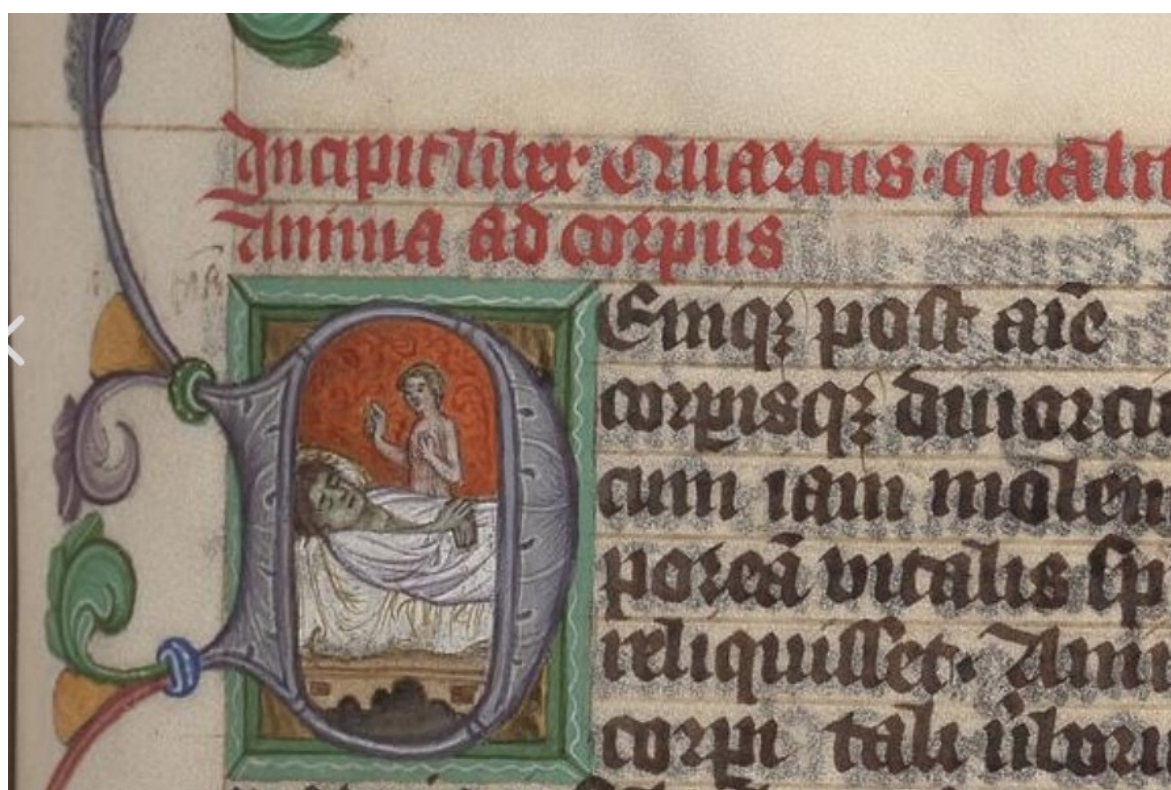 Incipit liber Quartus · qualit
Anima ad corpus
Einqꝫ post aīe
corpisqꝫ diuorcu
cum iam molen
poreā vitalis sp
reliquisset. Ani
corpi tali